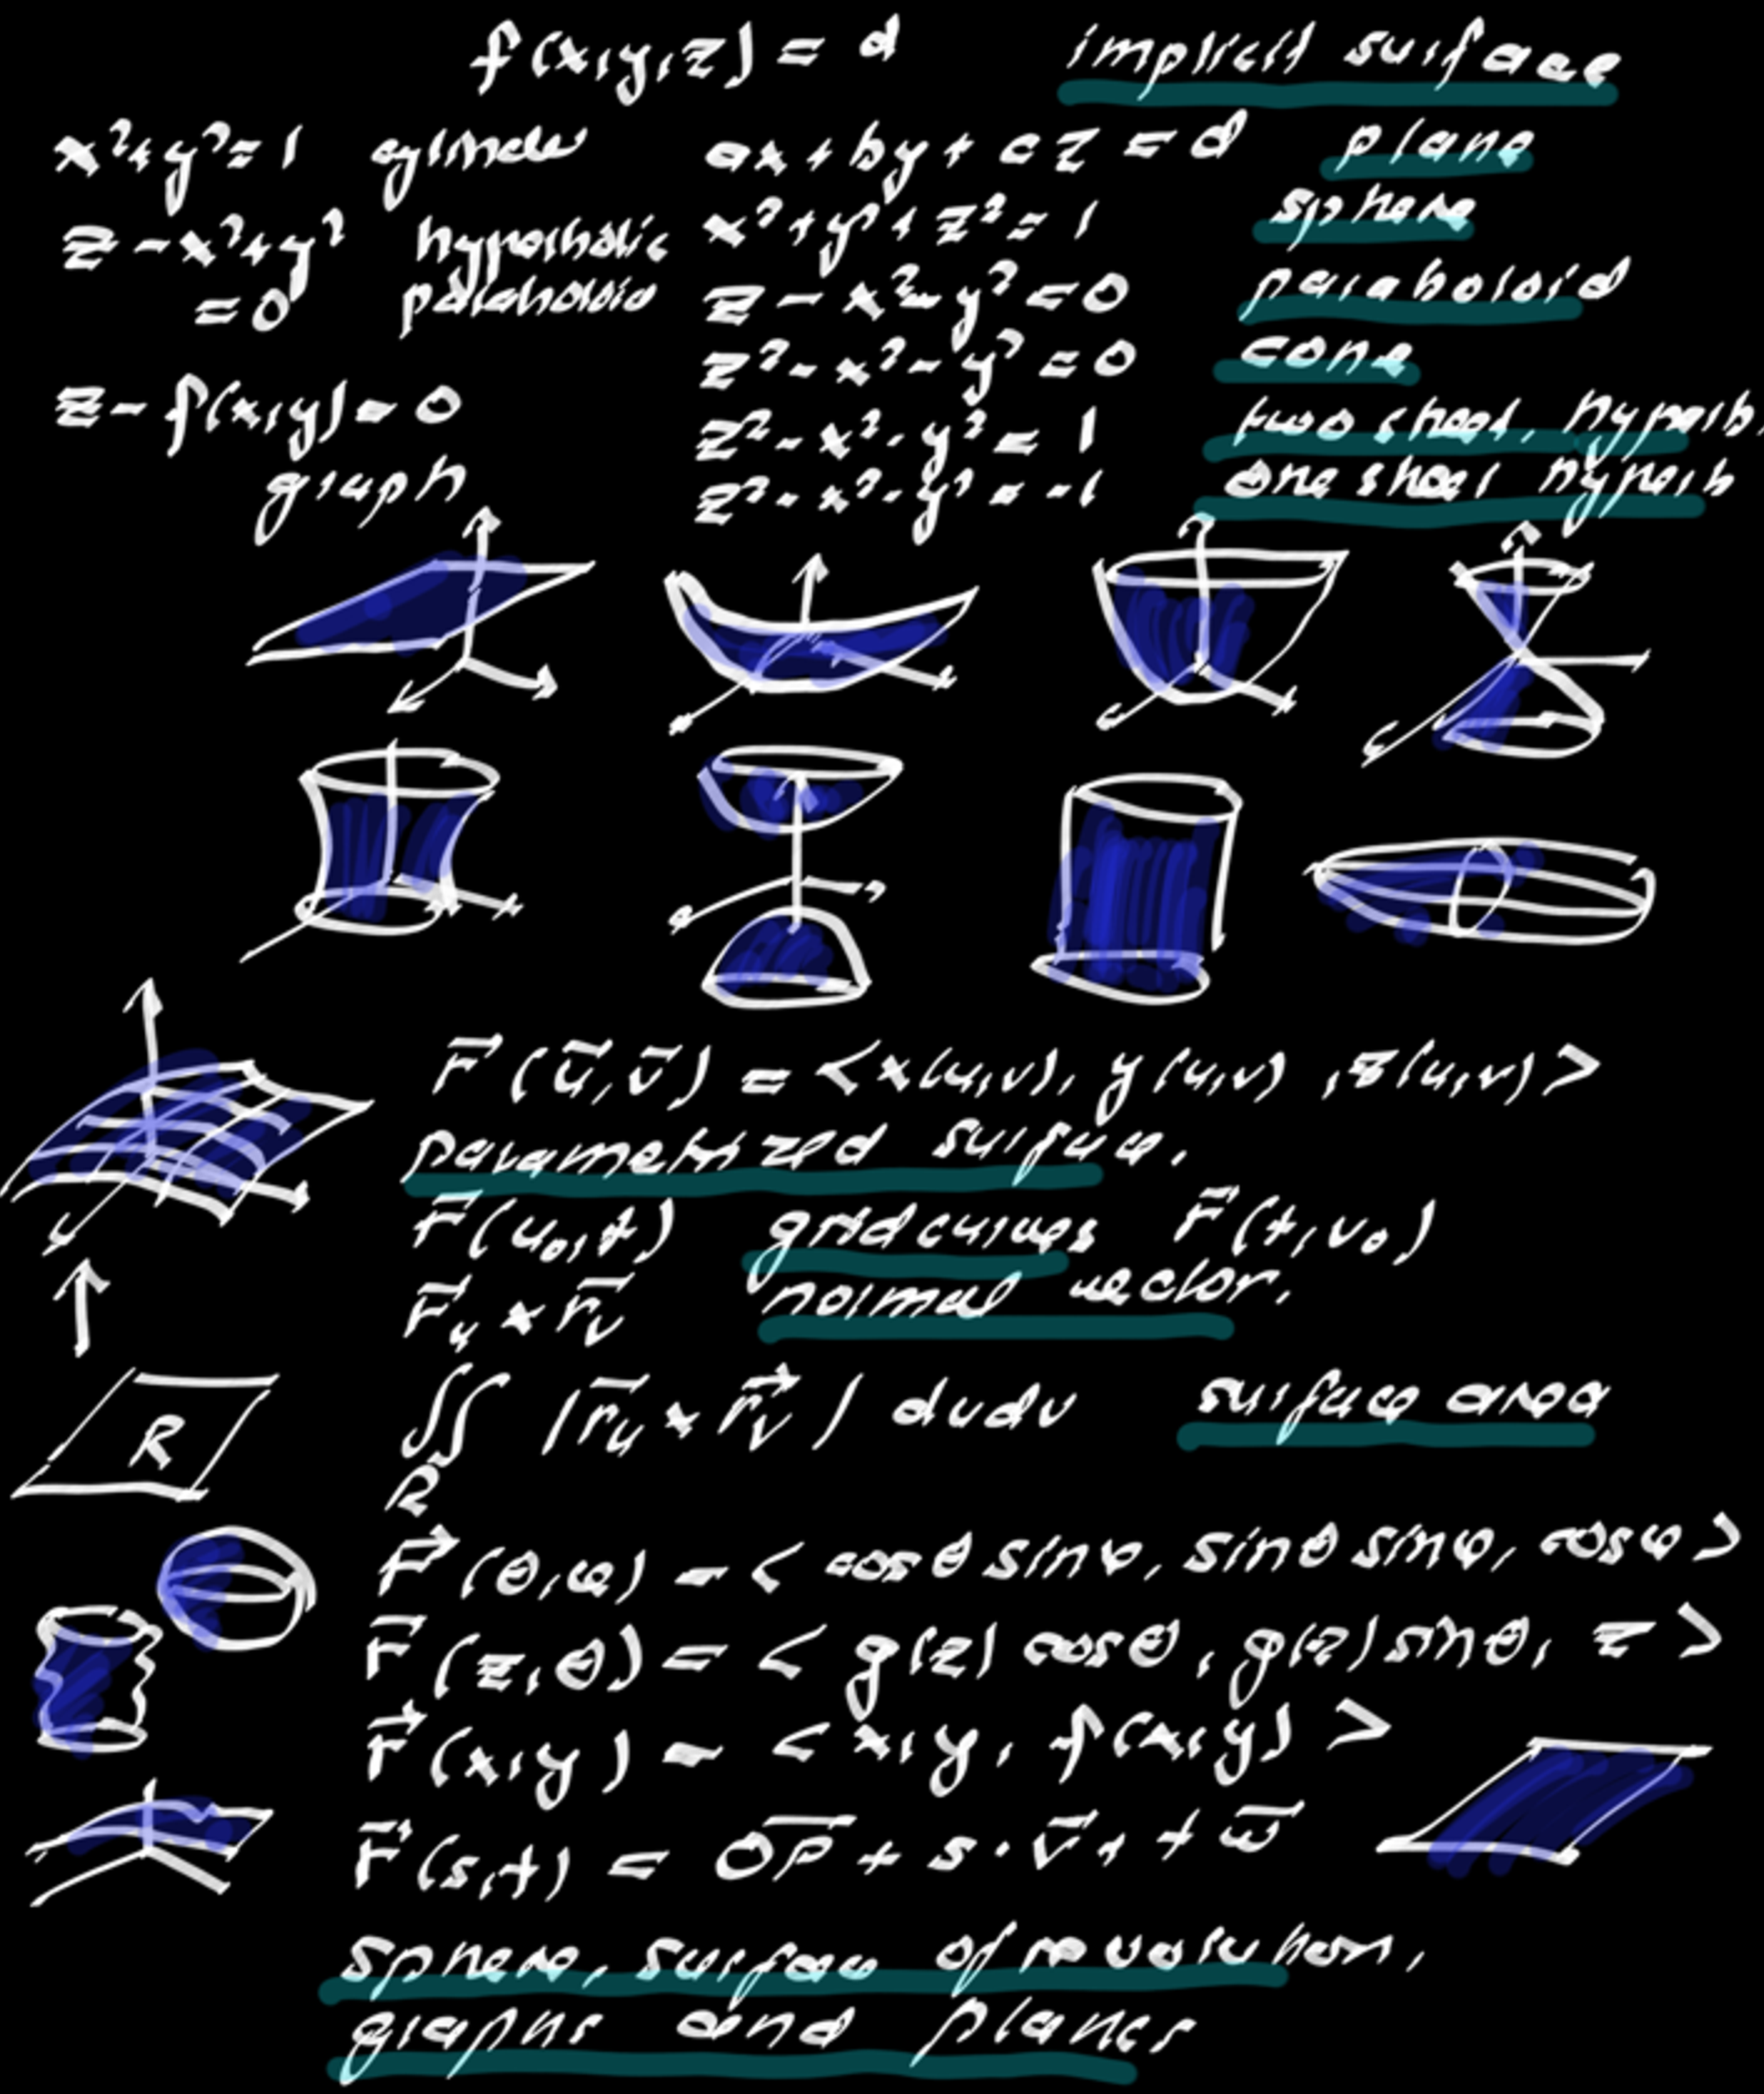 f(x,y,z) = d implicit surface
x²+y²=1 cylinder ax+by+cz=d plane
z-x²+y² hyperbolic x²+y²+z²=1 sphere
=0 paraboloid z-x²-y²=0 paraboloid
z²-x²-y²=0 cone
z-f(x,y)=0 z²-x²-y²=1 two sheet. hyperb.
graph z²-x²-y²=-1 one sheet hyperb
r⃗(u⃗,v⃗) = <x(u,v), y(u,v), z(u,v)>
parametrized surface.
r⃗(u₀,t) grid curves r⃗(t,v₀)
r⃗ᵤ × r⃗ᵥ normal vector.
R
∬ |r⃗ᵤ × r⃗ᵥ| dudv surface area
R
r⃗(θ,φ) = <cosθ sinφ, sinθ sinφ, cosφ>
r⃗(z,θ) = <g(z) cosθ, g(z) sinθ, z>
r⃗(x,y) = <x,y, f(x,y)>
r⃗(s,t) = OP⃗ + s·v⃗ + t w⃗
sphere, surface of revolution,
graphs and planes